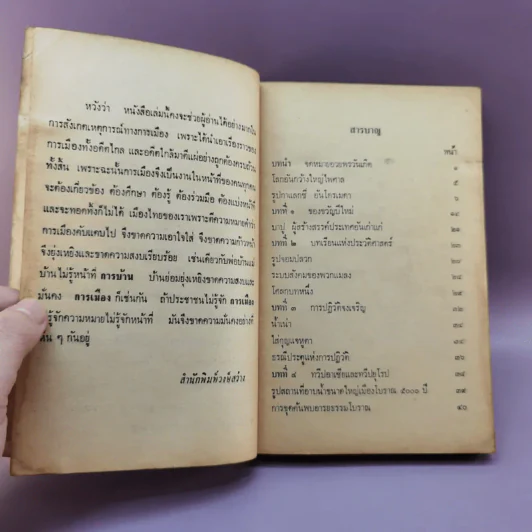 หวังว่า หนังสือเล่มนี้คงจะช่วยผู้อ่านได้อย่างมากใน
การสังเกตเหตุการณ์ทางการเมือง เพราะได้นำเอาเรื่องราวของ
การเมืองทั้งอดีตไกล และอดีตใกล้มาตีแผ่อย่างถูกต้องครบถ้วน
ทั้งสิ้น เพราะฉะนั้นการเมืองจึงเป็นงานในหน้าที่ของคนทุกคน
จะต้องเกี่ยวข้อง ต้องศึกษา ต้องรู้ ต้องร่วมมือ ต้องแบ่งหน้าที่
และจะทอดทิ้งก็ไม่ได้ เมืองไทยของเราเพราะตีความหมายคำว่า
การเมืองคับแคบไป จึงขาดความเอาใจใส่ จึงขาดความก้าวหน้า
จึงยุ่งเหยิงและขาดความสงบเรียบร้อย เช่นเดียวกับพ่อบ้านแม่
บ้านไม่รู้หน้าที่ การบ้าน บ้านย่อมยุ่งเหยิงขาดความสงบและ
มั่นคง การเมือง ก็เช่นกัน ถ้าประชาชนไม่รู้จัก การเมือง
รู้จักความหมายไม่รู้จักหน้าที่ มันจึงขาดความมั่นคงอย่างที่
ๆ กันอยู่
สำนักพิมพ์วงษ์สว่าง
สารบาญ
หน้า
บทนำ จดหมายอวยพรวันเกิด ๑
โลกอันกว้างใหญ่ไพศาล ๕
รูปกาแลกซี่ อันโดรเมดา ๖
บทที่ ๑ ของขวัญปีใหม่
นาปู ผู้สร้างสรรค์ประเทศอันเก่าแก่
บทที่ ๒ บทเรียนแห่งประวัติศาสตร์
รูปจอมปลวก
ระบบสังคมของพวกแมลง
โคลกบทหนึ่ง
บทที่ ๓ การปฏิวัติจงเจริญ
น้ำเน่า
ไส้กูญเจหุดา
ธรณีประตูแห่งการปฏิวัติ
บทที่ ๔ ทวีปอาเซียและทวีปยุโรป
รูปสถานที่อาบน้ำขนาดใหญ่เมืองโบราณ ๕๐๐๐ ปี ๓๙
การขุดค้นพบอารยธรรมโบราณ ๔๐